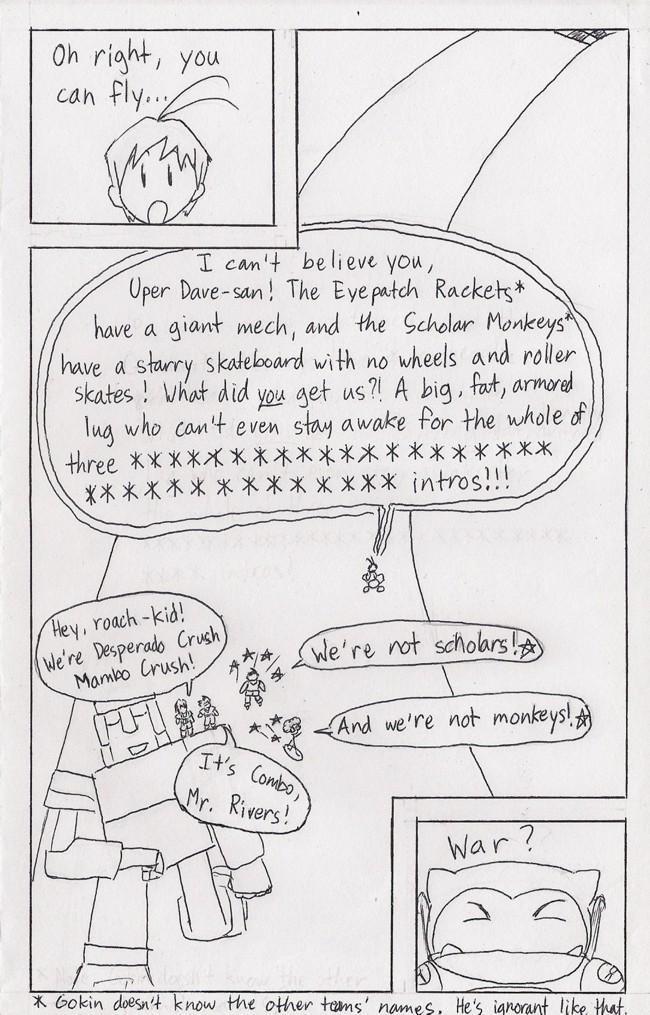 Oh right, you
can fly...
I can't believe you,
Uper Dave-san! The Eyepatch Rackets*
have a giant mech, and the Scholar Monkeys*
have a starry skateboard with no wheels and roller
skates! What did you get us?! A big, fat, armored
lug who can't even stay awake for the whole of
three ********************
*************** intros!!!
Hey, roach-kid!
We're Desperado Crush
Mambo Crush!
We're not scholars!☆
And we're not monkeys!☆
It's Combo,
Mr. Rivers!
War?
* Gokin doesn't know the other teams' names. He's ignorant like that.